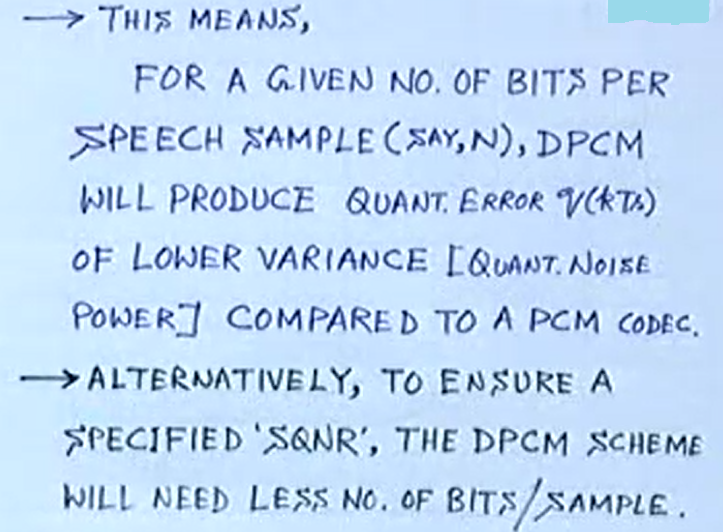 → THIS MEANS,
FOR A GIVEN NO. OF BITS PER
SPEECH SAMPLE (SAY, N), DPCM
WILL PRODUCE QUANT. ERROR q(kTs)
OF LOWER VARIANCE [QUANT. NOISE
POWER] COMPARED TO A PCM CODEC.
→ ALTERNATIVELY, TO ENSURE A
SPECIFIED 'SQNR', THE DPCM SCHEME
WILL NEED LESS NO. OF BITS/SAMPLE.